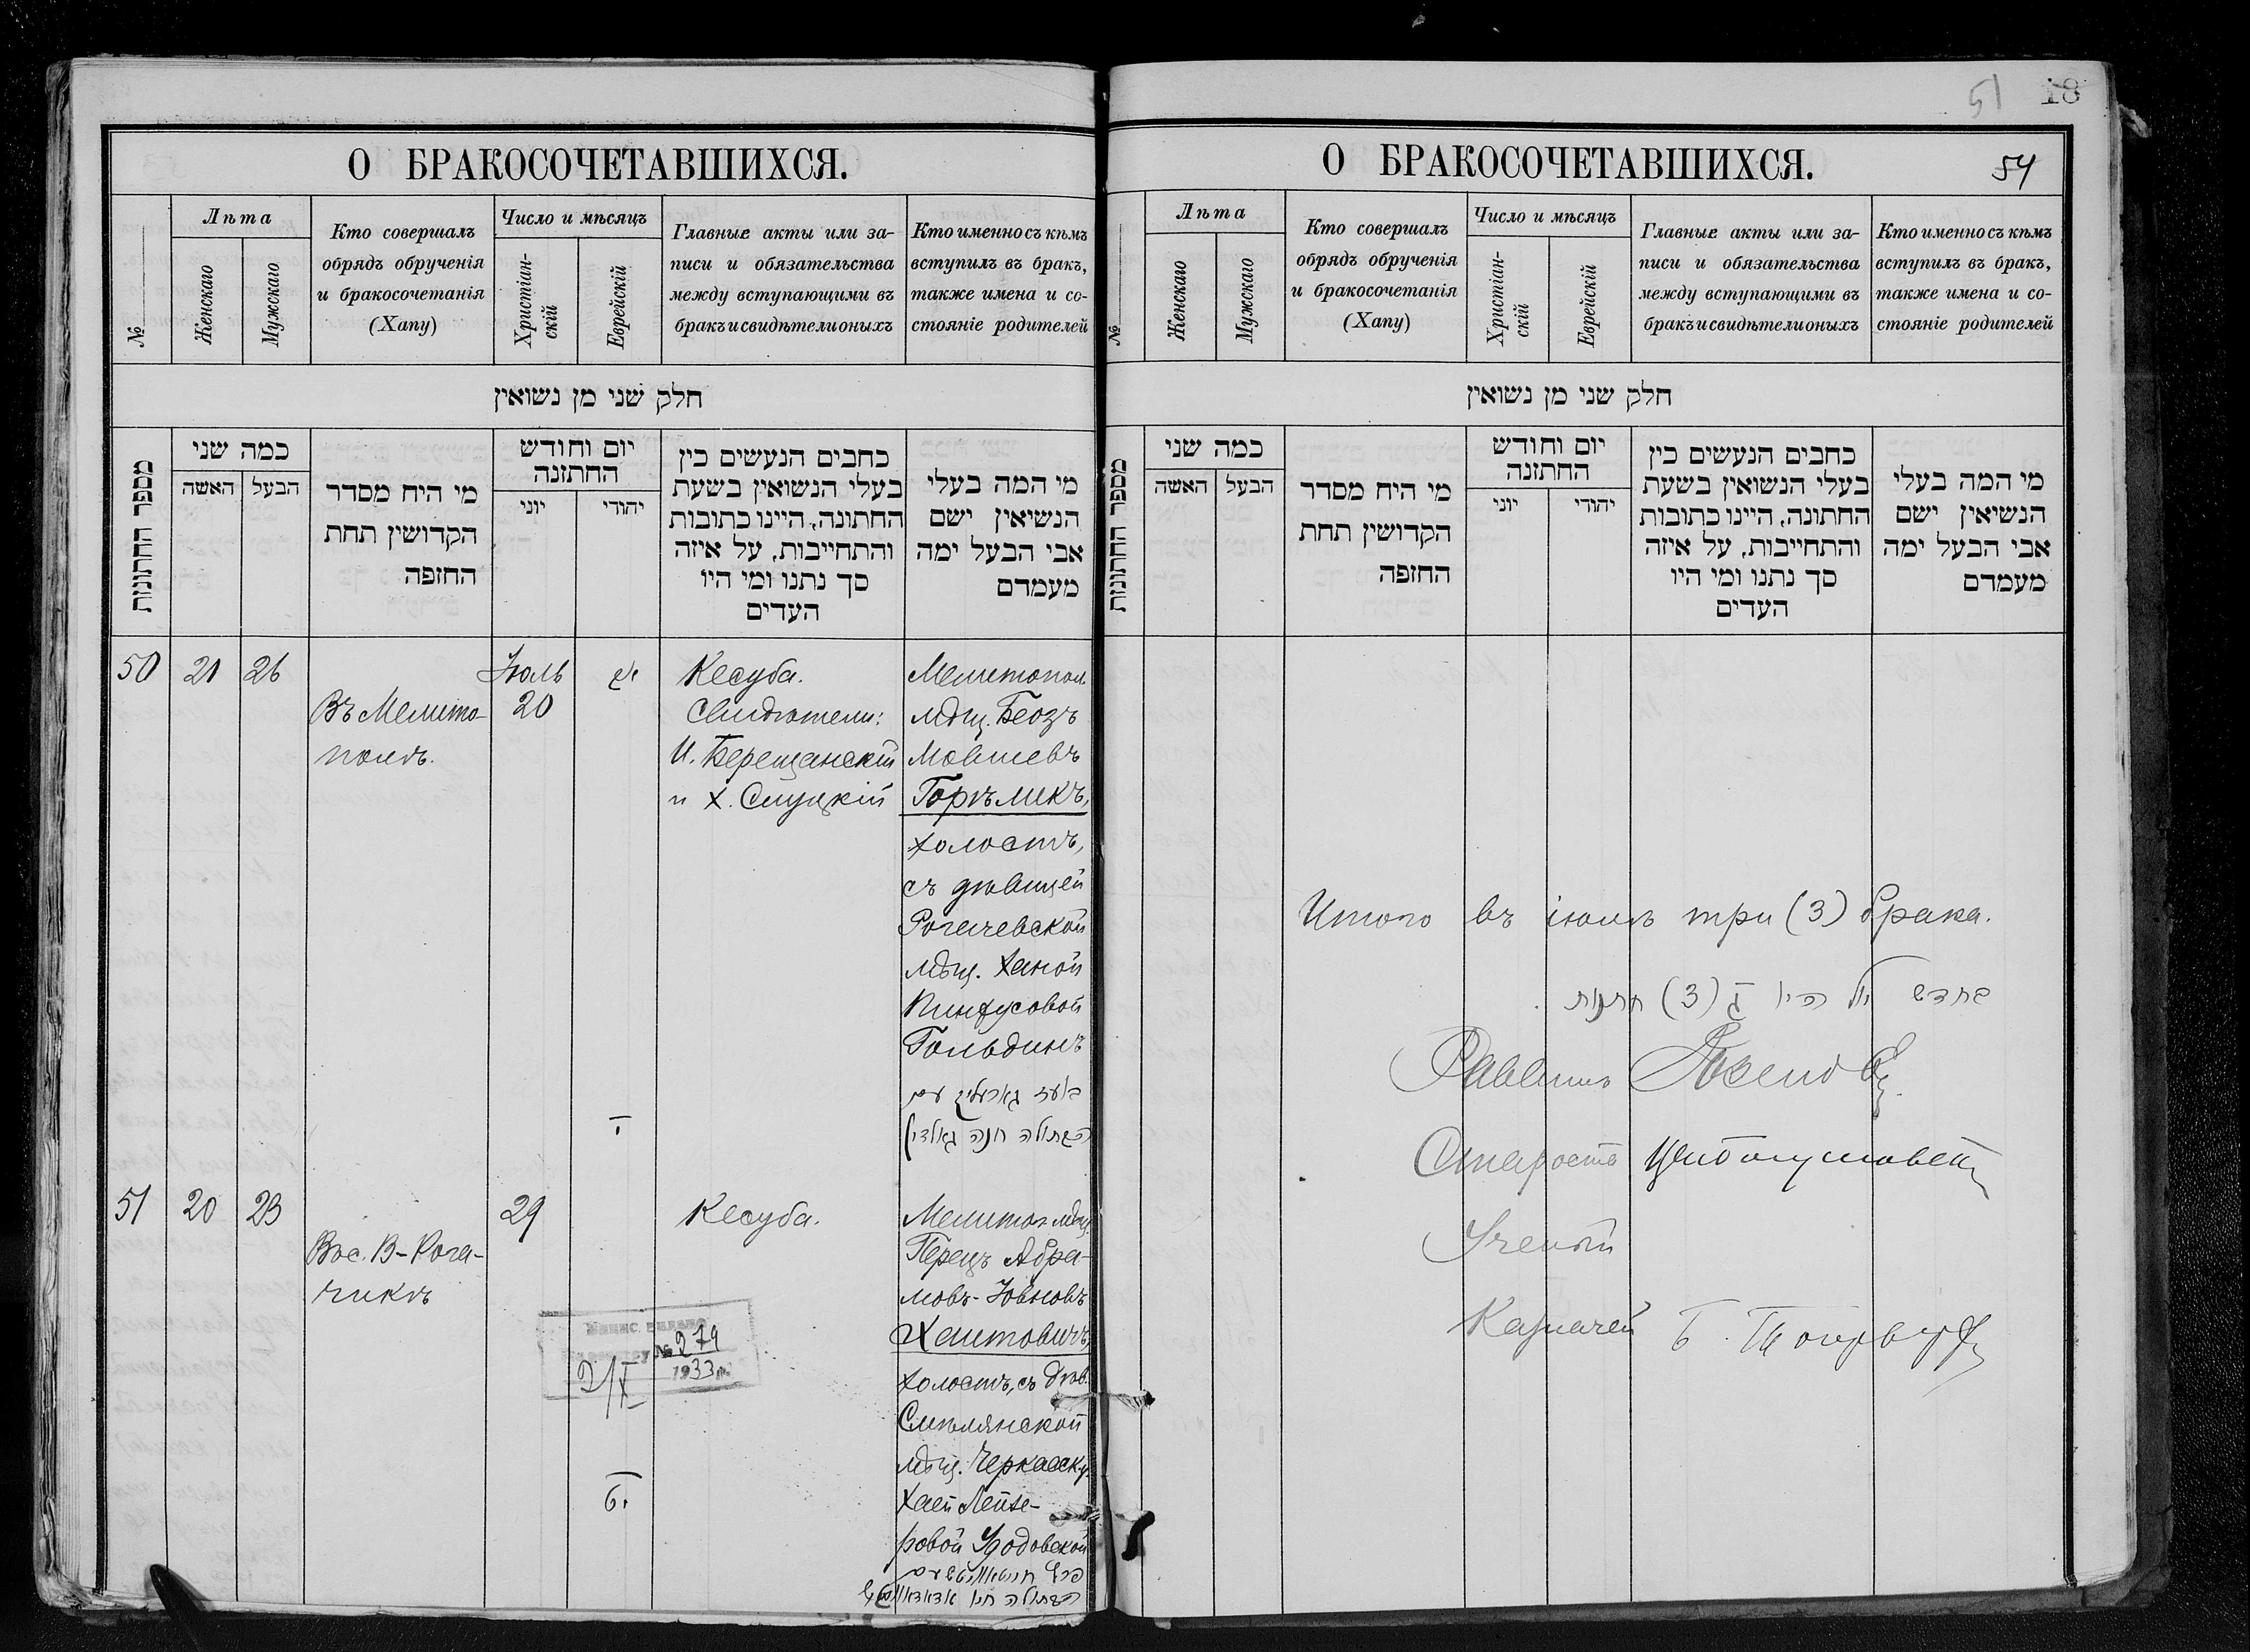 О БРАКОСОЧЕТАВШИХСЯ.
№
Лѣта
Женскаго
Мужскаго
Кто совершалъ
обрядъ обрученія
и бракосочетанія
(Хапу)
Число и мѣсяцъ
Христіан-
скій
Еврейскій
Главные акты или за-
писи и обязательства
между вступающими въ
бракъ и свидѣтели оныхъ
Кто именно съ кѣмъ
вступилъ въ бракъ,
также имена и со-
стояніе родителей
חלק שני מן נשואין
מספר החתונות
כמה שני
האשה
הבעל
מי היח מסדר
הקדושין תחת
החופה
יום וחודש
החתונה
יוני
יהודי
כחבים הנעשים כין
בעלי הנשואין בשעת
החתונה, היינו כתובות
והתחייבות, על איזה
סך נתנו ומי היו
העדים
מי המה בעלי
הנשיאין ישם
אבי הבעל ימה
מעמדם
50
21
26
Въ Мелито-
полѣ.
Іюль
20
Кесуба.
Свидѣтели:
И. Берещанскій
и Х. Слуцкій
Мелитопол.
мѣщ. Беозъ
Мовшевъ
Горѣликъ,
холостъ,
съ дѣвицей
Рогачевской
мѣщ. Ханой
Пинхусовой
Гольдинъ
באעז גארעליק עם
הבתולה חנה גאלדין
51
20
23
Въ с. В-Рога-
чикѣ
29
Кесуба.
Мелитоп. мѣщ.
Перецъ Абра-
мовъ-Іовновъ
Хаитовичъ,
холостъ, съ дѣв.
Смѣлянской
мѣщ. Черкасск. у.
Хаей Лейзе-
ровой Удовской
פרץ חייטאוויטש עם
הבתולה חיה
№ 279
1933 г.
2/X
51
18
О БРАКОСОЧЕТАВШИХСЯ.
54
№
Лѣта
Женскаго
Мужскаго
Кто совершалъ
обрядъ обрученія
и бракосочетанія
(Хапу)
Число и мѣсяцъ
Христіан-
скій
Еврейскій
Главные акты или за-
писи и обязательства
между вступающими въ
бракъ и свидѣтели оныхъ
Кто именно съ кѣмъ
вступилъ въ бракъ,
также имена и со-
стояніе родителей
חלק שני מן נשואין
מספר החתונות
כמה שני
האשה
הבעל
מי היח מסדר
הקדושין תחת
החופה
יום וחודש
החתונה
יוני
יהודי
כחבים הנעשים כין
בעלי הנשואין בשעת
החתונה, היינו כתובות
והתחייבות, על איזה
סך נתנו ומי היו
העדים
מי המה בעלי
הנשיאין ישם
אבי הבעל ימה
מעמדם
Итого въ іюлѣ три (3) брака.
בחדש יול היו ג (3) חתונות
Раввинъ
Староста
Ученый
Казначей Б.